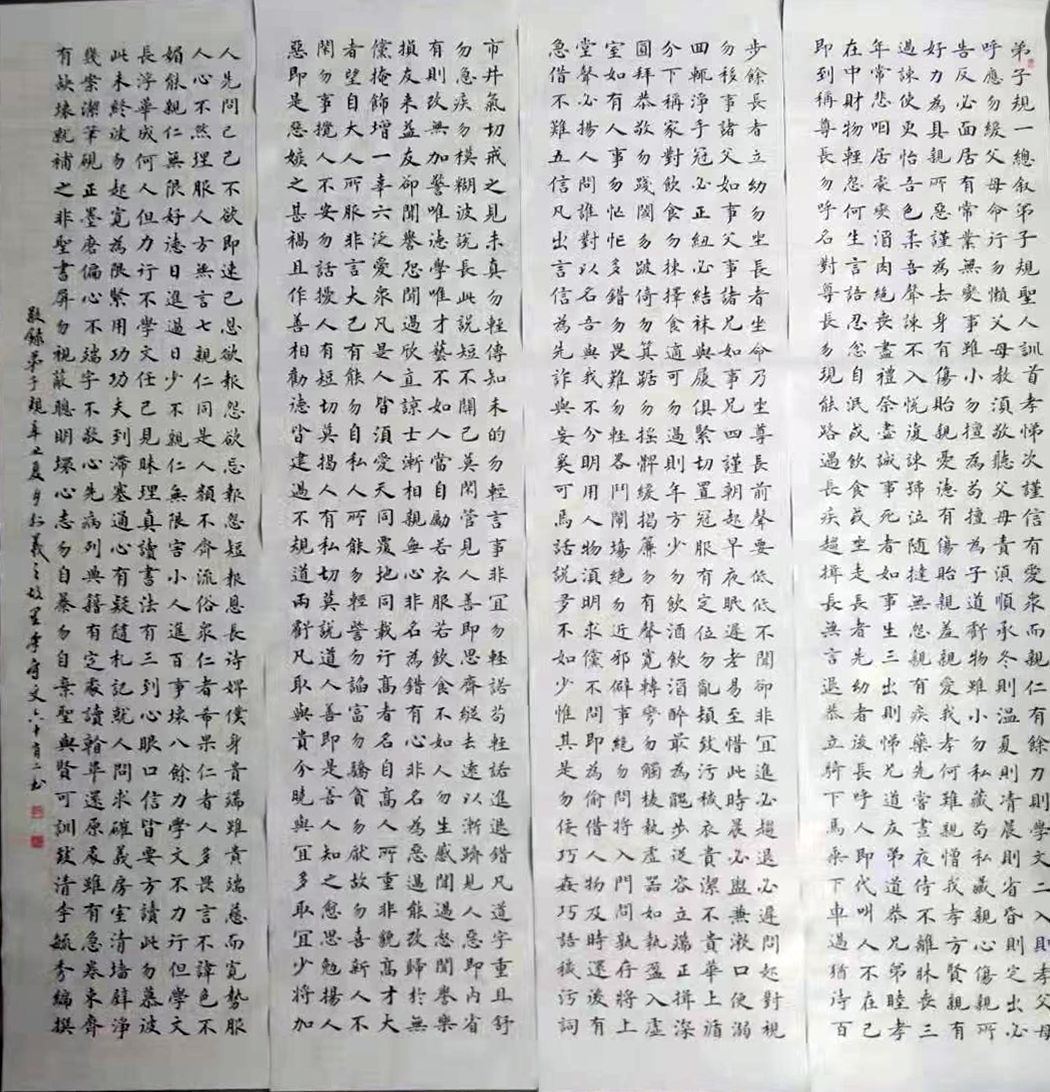 弟子規一總叙弟子規聖人訓首孝悌次謹信有愛眾而親仁有餘力則學文二入則孝父母
呼應勿緩父母命行勿懶父母教須敬聽父母責須順承冬則溫夏則凊晨則省昏則定出必
告反必面居有常業無變事雖小勿擅為苟擅為子道虧物雖小勿私藏苟私藏親心傷親所
好力為具親所惡謹為去身有傷貽親憂德有傷貽親羞親愛我孝何難親憎我孝方賢親有
過諫使更怡吾色柔吾聲諫不入悅復諫號泣隨撻無怨親有疾藥先嘗晝夜侍不離牀喪三
年常悲咽居處變酒肉絕喪盡禮祭盡誠事死者如事生三出則悌兄道友弟道恭兄弟睦孝
在中財物輕忽何生言語忍忿自泯或飲食或坐走長者先幼者後長呼人即代叫人不在己
即到稱尊長勿呼名對尊長勿現能路遇長疾趨揖長無言退恭立騎下馬乘下車過猶待百
步餘長者立幼勿坐長者坐命乃坐尊長前聲要低低不聞卻非宜進必趨退必遲問起對視
勿移事諸父如事父事諸兄如事兄四謹朝起早夜眠遲老易至惜此時晨必盥兼漱口便溺
回輒淨手冠必正紐必結襪與履俱緊切置冠服有定位勿亂頓致污穢衣貴潔不貴華上循
分下稱家對飲食勿揀擇食適可勿過則年方少勿飲酒飲酒醉最為醜步從容立端正揖深
圓拜恭敬勿踐閾勿跛倚勿箕踞勿搖髀緩揭簾勿有聲寬轉彎勿觸棱執虛器如執盈入虛
室如有人事勿忙忙多錯勿畏難勿輕畧鬥鬧場絕勿近邪僻事絕勿問將入門問孰存將上
堂聲必揚人問誰對以名吾與我不分明用人物須明求儻不問即為偷借人物及時還後有
急借不難五信凡出言信為先詐與妄奚可焉話說多不如少惟其是勿佞巧姦巧語穢污詞
市井氣切戒之見未真勿輕傳知未的勿輕言事非宜勿輕諾苟輕諾進退錯凡道字重且舒
勿急疾勿模糊彼說長此說短不關己莫閑管見人善即思齊縱去遠以漸躋見人惡即內省
有則改無加警唯德學唯才藝不如人當自勵若衣服若飲食不如人勿生慼聞過怒聞譽樂
損友來益友卻聞譽恐聞過欣直諒士漸相親無心非名為錯有心非名為惡過能改歸於無
儻掩飾增一辜六泛愛眾凡是人皆須愛天同覆地同載行高者名自高人所重非貌高才大
者望自大人所服非言大己有能勿自私人所能勿輕訾勿諂富勿驕貧勿厭故勿喜新人不
閑勿事攪人不安勿話擾人有短切莫揭人有私切莫說道人善即是善人知之愈思勉揚人
惡即是惡嫉之甚禍且作善相勸德皆建過不規道兩虧凡取與貴分曉與宜多取宜少將加
人先問己己不欲即速已恩欲報怨欲忘報怨短報恩長待婢僕身貴端雖貴端慈而寬勢服
人心不然理服人方無言七親仁同是人類不齊流俗眾仁者希果仁者人多畏言不諱色不
媚能親仁無限好德日進過日少不親仁無限害小人進百事壞八餘力學文不力行但學文
長浮華成何人但力行不學文任己見昧理真讀書法有三到心眼口信皆要方讀此勿慕彼
此未終彼勿起寬為限緊用功功夫到滯塞通心有疑隨札記就人問求確義房室清墻壁淨
幾案潔筆硯正墨磨偏心不端字不敬心先病列典籍有定處讀看畢還原處雖有急卷束齊
有缺壞就補之非聖書屏勿視蔽聰明壞心志勿自暴勿自棄聖與賢可訓致清李毓秀編撰
敬錄弟子規辛丑夏月於羲之故里李守文六十有二書